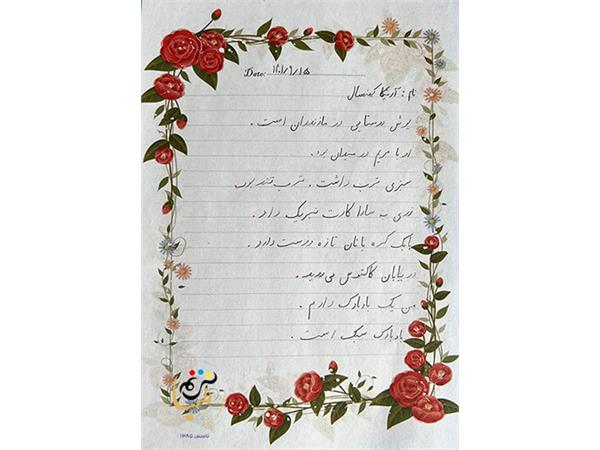 Date: ۱۴۰۱/۹/۱۵
نام: آرنیکا کهنسال
برش روستایی در مازندران است.
او با مریم در میدان بود.
سبزی ترب داشت. ترب تند بود.
نوری به سارا کارت تبریک داد.
بابک کره با نان تازه دوست دارد.
در بیابان کاکتوس می روید.
من یک بادبادک دارم.
بادبادک سبک است.
تاسیس ۱۳۸۵